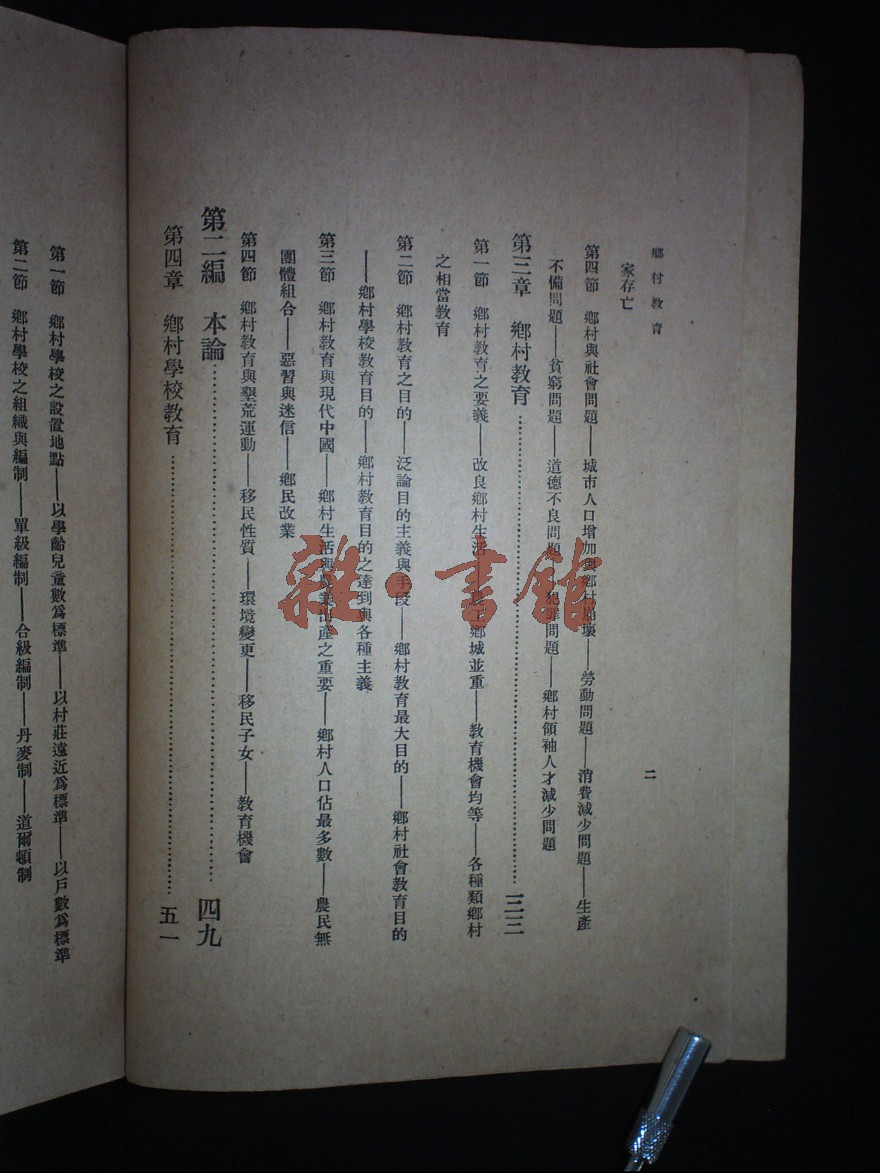 鄉村教育
二
家存亡
第四節 鄉村與社會問題——城市人口增加與鄉村崩壞——勞動問題——消費減少問題——生產
不備問題——貧窮問題——道德不良問題——犯罪問題——鄉村領袖人才減少問題
第三章 鄉村教育……三三
第一節 鄉村教育之要義——改良鄉村生活——農工鄉城並重——教育機會均等——各種類鄉村
之相當教育
第二節 鄉村教育之目的——泛論目的主義與手段——鄉村教育最大目的——鄉村社會教育目的
——鄉村學校教育目的——鄉村教育目的之達到與各種主義
第三節 鄉村教育與現代中國——鄉村生活與農業出產之重要——鄉村人口佔最多數——農民無
團體組合——惡習與迷信——鄉民改業
第四節 鄉村教育與墾荒運動——移民性質——環境變更——移民子女——教育機會
第二編 本論……四九
第四章 鄉村學校教育……五一
第一節 鄉村學校之設置地點——以學齡兒童數爲標準——以村莊遠近爲標準——以戶數爲標準
第二節 鄉村學校之組織與編制——單級編制——合級編制——丹麥制——道爾頓制
雜·書館